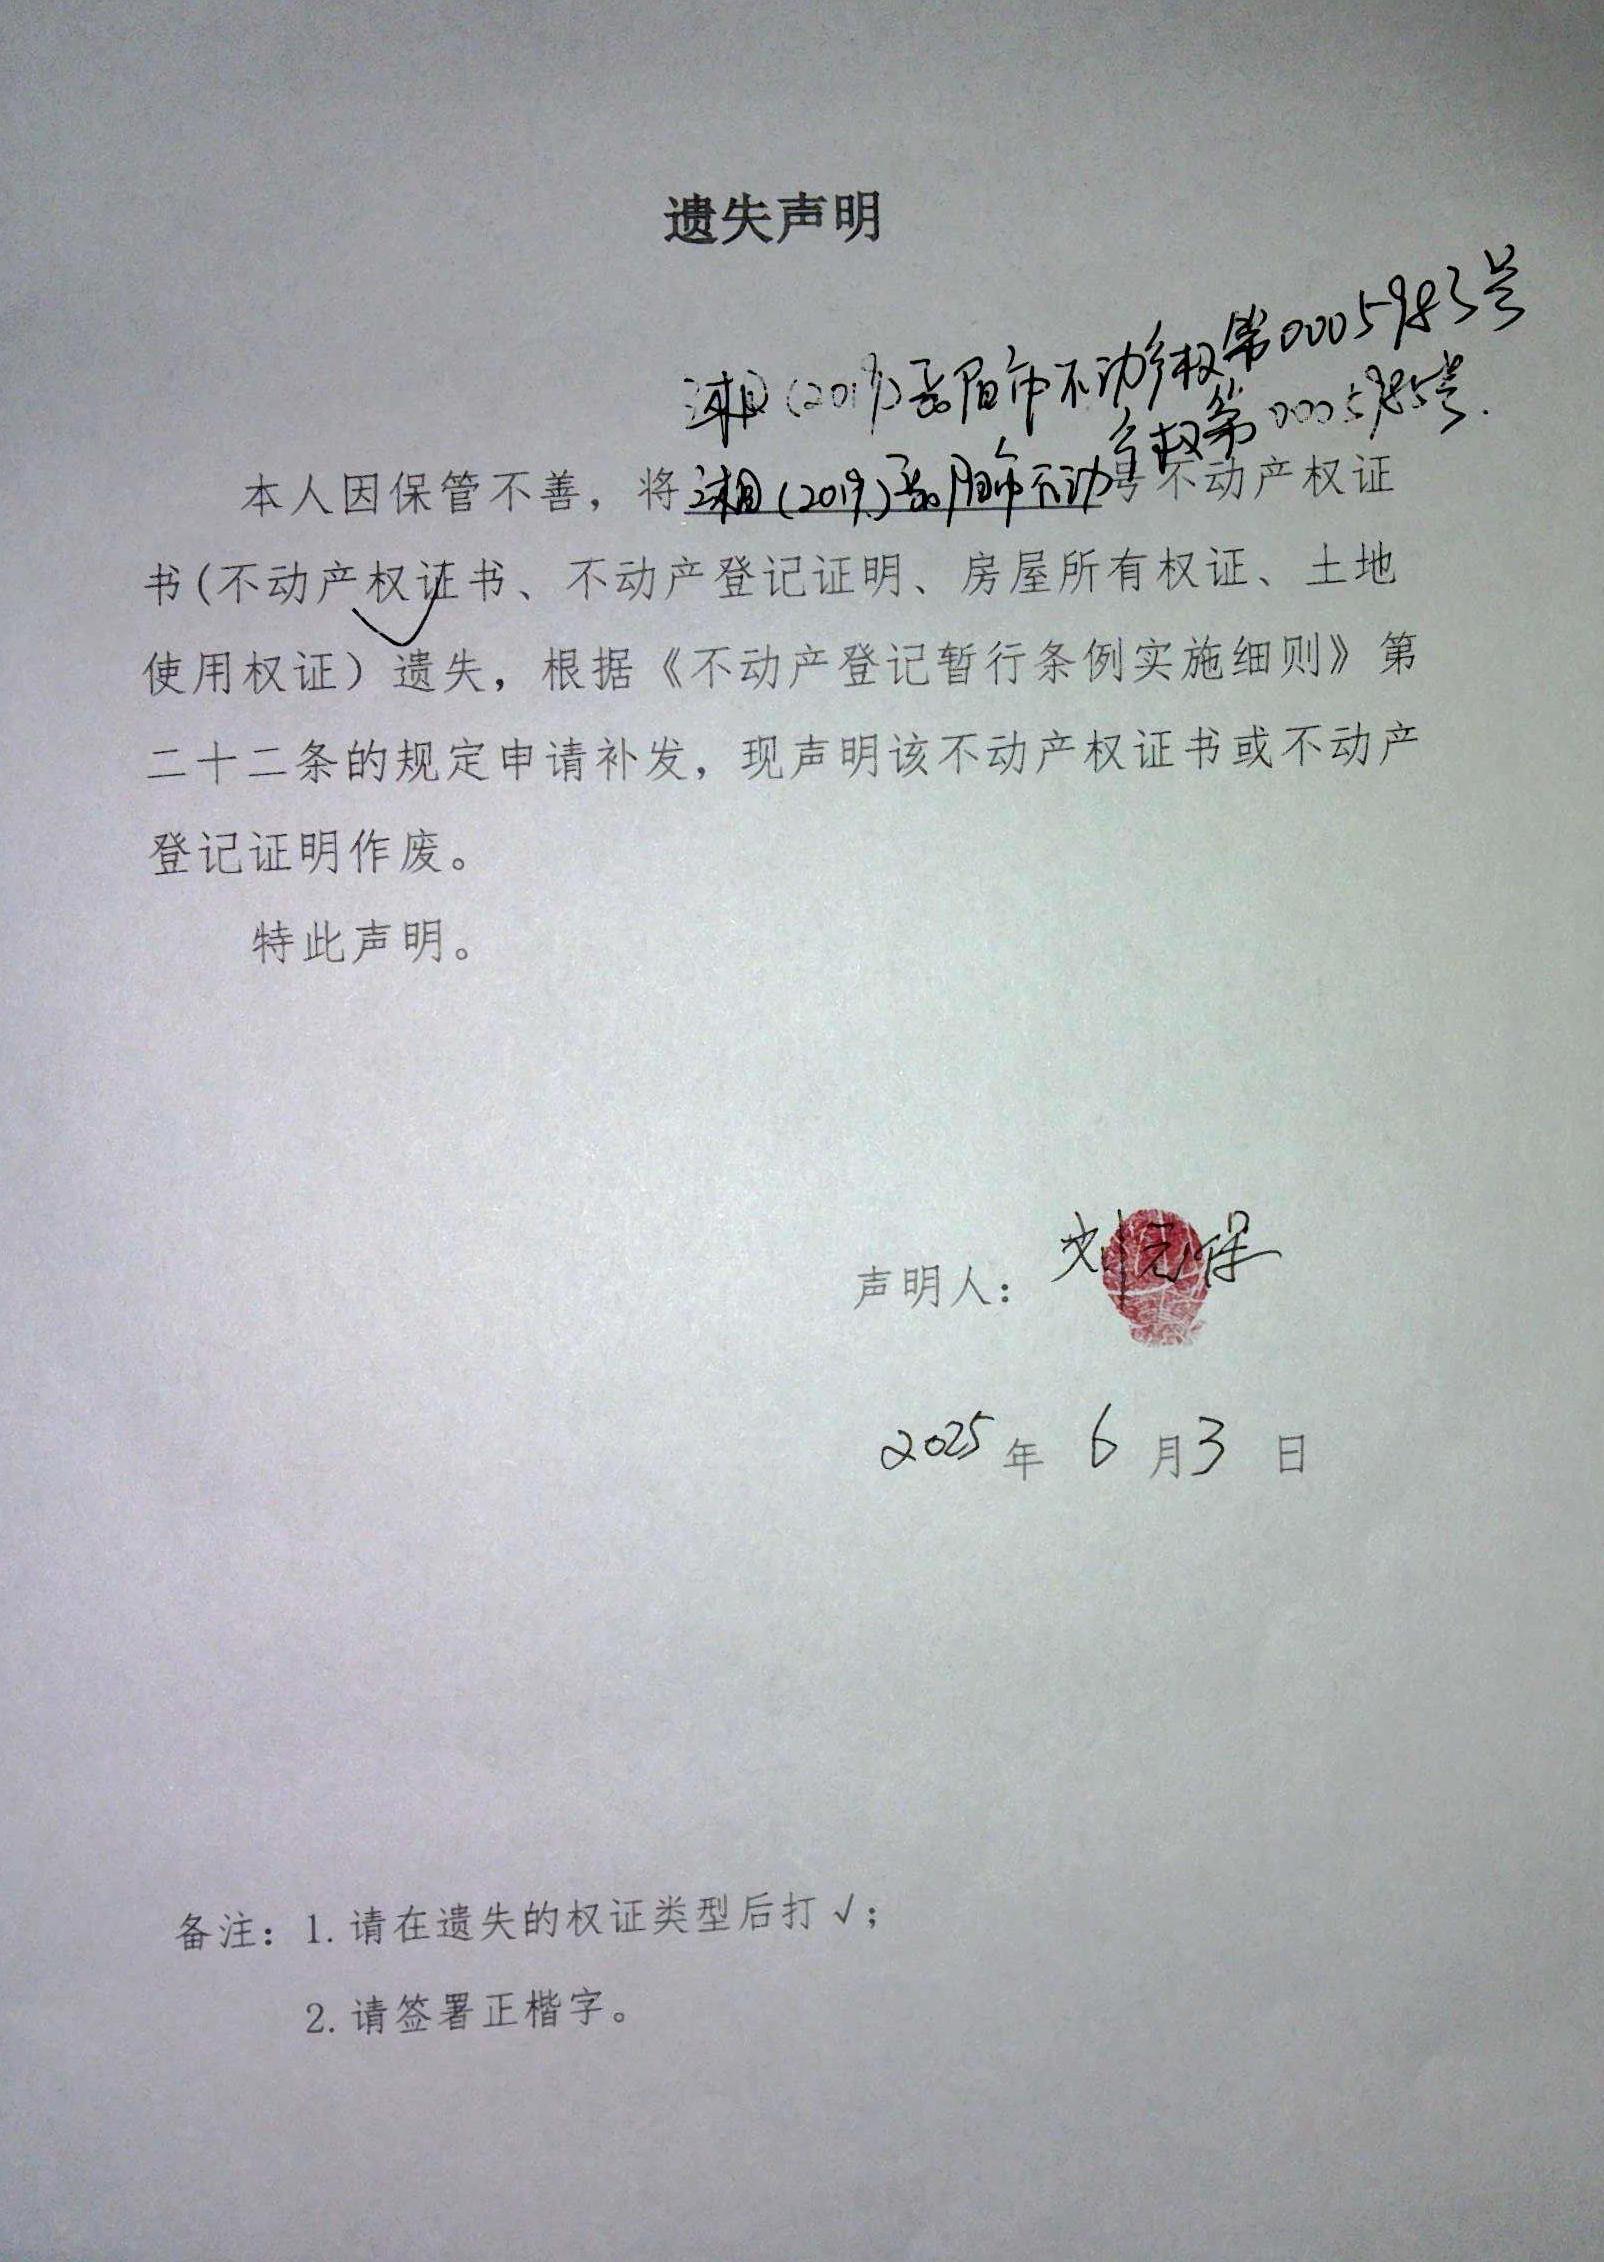 遗失声明
湘(2019)岳阳市不动产权第0005983号
产权第0005985号.
本人因保管不善，将湘(2019)岳阳市不动号不动产权证
书(不动产权证书、不动产登记证明、房屋所有权证、土地
使用权证）遗失，根据《不动产登记暂行条例实施细则》第
二十二条的规定申请补发，现声明该不动产权证书或不动产
登记证明作废。
特此声明。
声明人：刘元保
2025年6月3日
备注：1.请在遗失的权证类型后打√；
2.请签署正楷字。